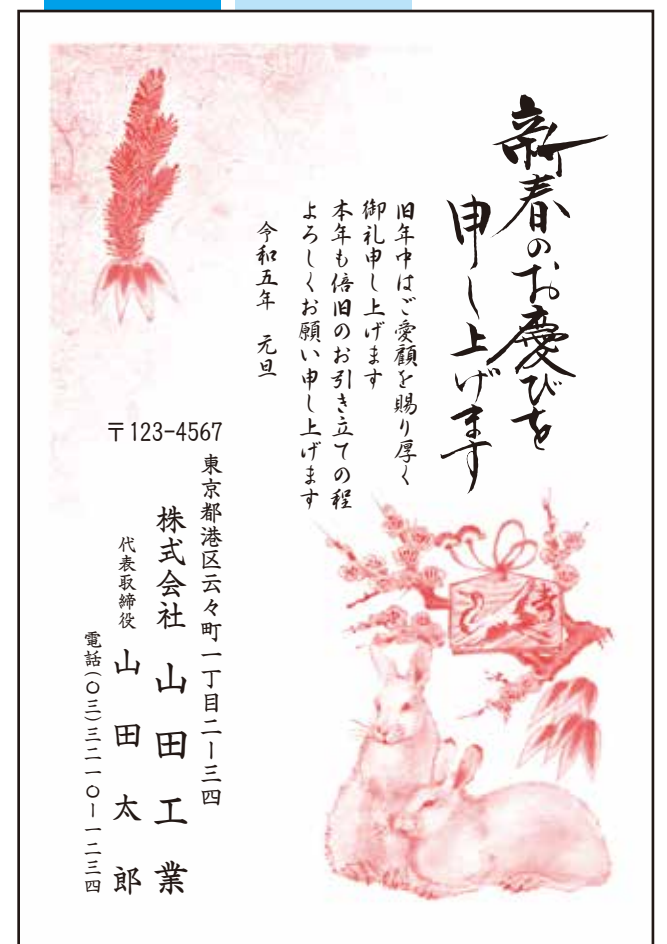 新春のお慶びを
申し上げます
旧年中はご愛顧を賜り厚く
御礼申し上げます
本年も倍旧のお引き立ての程
よろしくお願い申し上げます
令和五年　元旦
〒123-4567
東京都港区云々町一丁目二ー三四
株式会社 山田工業
代表取締役 山田太郎
電話(〇三)三二一〇ー一二三四
寿